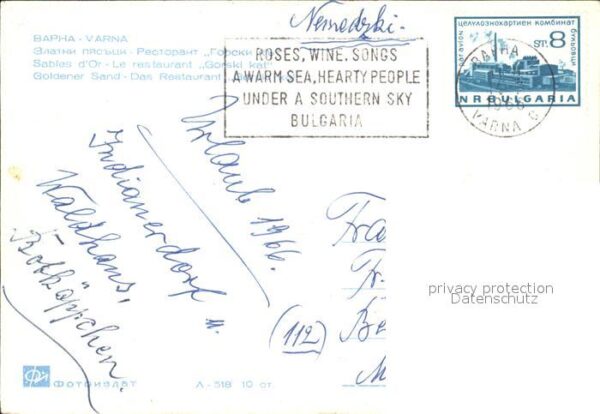 Nemedzki-
ВАРНА - VARNA
Златни пясъци - Ресторант „Горски кът“
Sables d'Or - Le restaurant „Gorski kat“
Goldener Sand - Das Restaurant
ROSES, WINE, SONGS
A WARM SEA, HEARTY PEOPLE
UNDER A SOUTHERN SKY
BULGARIA
par avion целулознохартиен комбинат
ST. 8
NR BULGARIA
ВАРНА
1966
VARNA
Urlaub 1966.
Indianerdorf u.
Waldhaus,
Rotkäppchen.
Fra
Fr.
(112) Be
M
privacy protection
Datenschutz
Фотоиздат
А-518 10 ст.